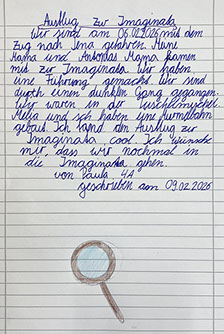 Ausflug zur Imaginata
Wir sind am 06.02.2026 mit dem
Zug nach Jena gefahren. Meine
Mama und Antonias Mama kamen
mit zur Imaginata. Wir haben
eine Führung gemacht. Wir sind
durch einen dunklen Gang gegangen.
Wir waren in der Kuschelmuschel.
Melja und ich haben eine Murmelbahn
gebaut. Ich fand den Ausflug zur
Imaginata cool. Ich wünsche
mir, dass wir nochmal in
die Imaginata gehen.
von Paula 4A
geschrieben am 09.02.2026